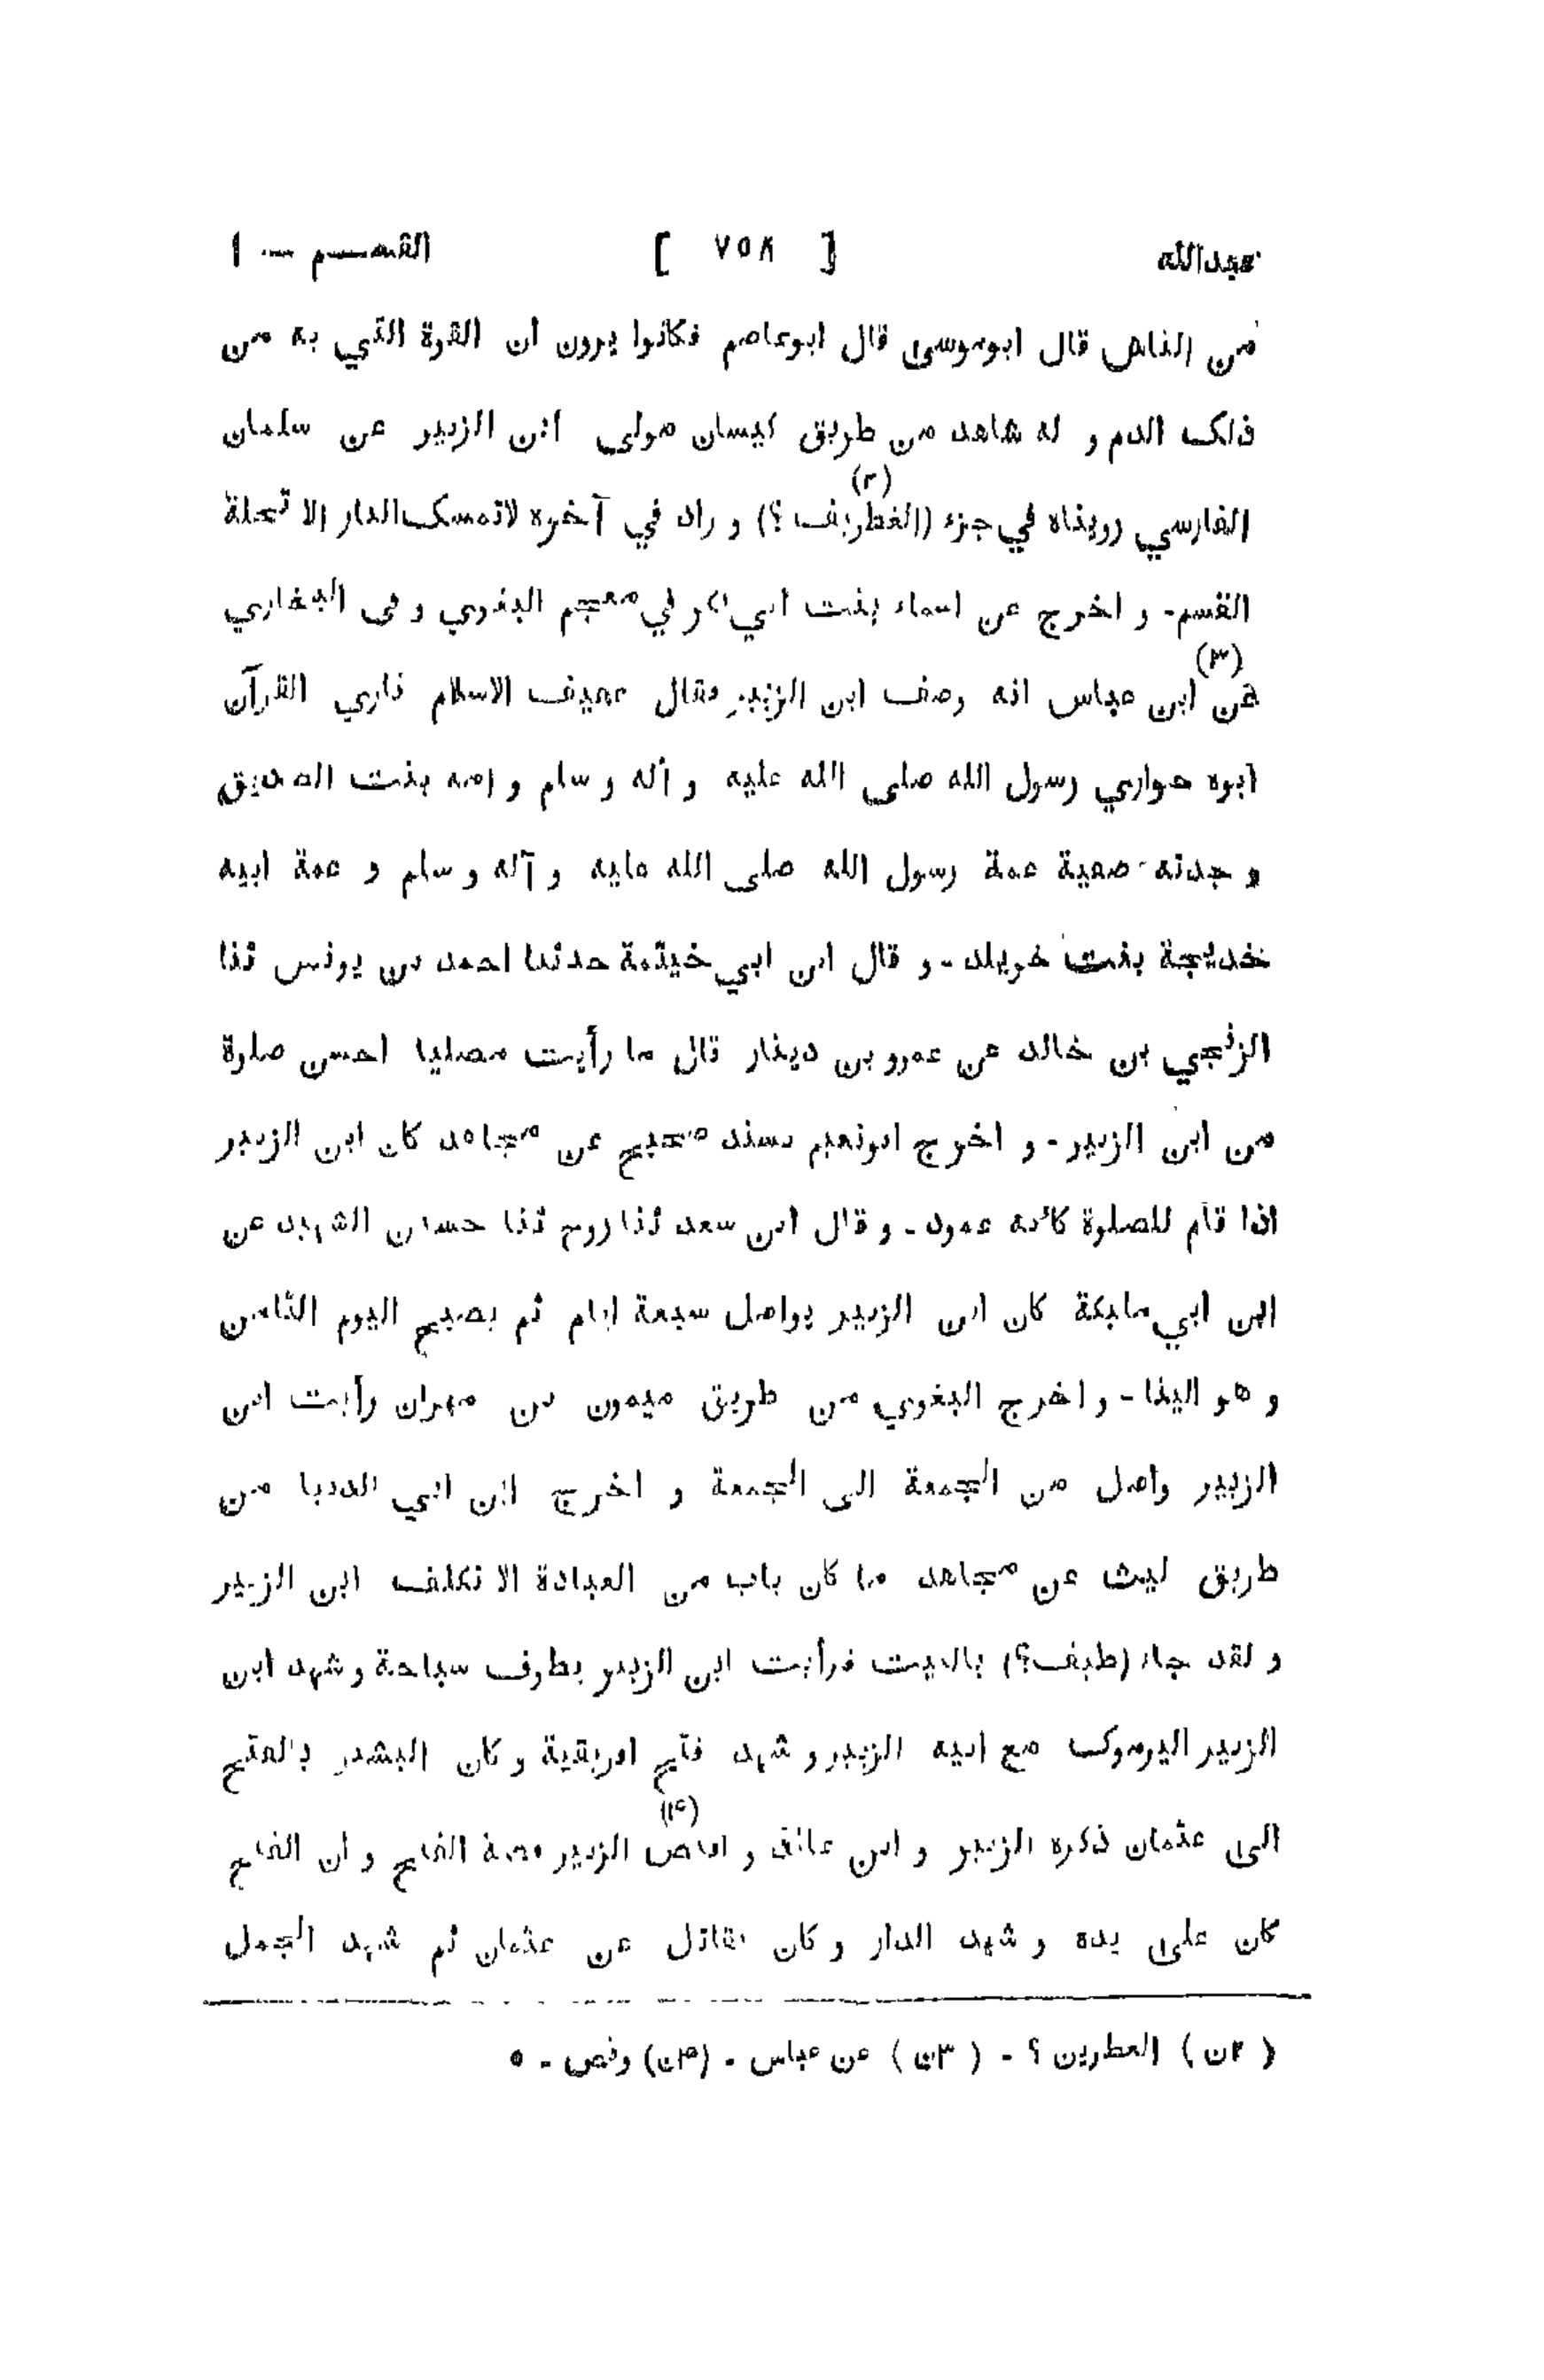 عبدالله [ ٧٥٨ ] القســـم — ١
من الناس قال ابوموسى قال ابوعاصم فكانوا يرون ان القوة التي به من
ذلك الدم و له شاهد من طريق كيسان مولى ابن الزبير عن سلمان
الفارسي رويناه في جزء (الغطريف ؟) (٢) و زاد في آخره لاتمسك النار الا تحلة
القسم - و اخرج عن اسماء بنت ابي بكر في معجم البغوي و في البخاري
عن (٣) ابن عباس انه وصف ابن الزبير فقال عفيف الاسلام قاري القرآن
ابوه حواري رسول الله صلى الله عليه و آله و سلم و امه بنت الصديق
و جدته صفية عمة رسول الله صلى الله عليه و آله و سلم و عمة ابيه
خديجة بنت خويلد - و قال ابن ابي خيثمة حدثنا احمد بن يونس ثنا
الزنجي بن خالد عن عمرو بن دينار قال ما رأيت مصليا احسن صلوة
من ابن الزبير - و اخرج ابونعيم بسند صحيح عن مجاهد كان ابن الزبير
اذا قام للصلوة كانه عمود - و قال ابن سعد ثنا روح ثنا حسين الشهيد عن
ابن ابي مليكة كان ابن الزبير يواصل سبعة ايام ثم يصبح اليوم الثامن
و هو الينا - و اخرج البغوي من طريق ميمون بن مهران رأيت ابن
الزبير واصل من الجمعة الى الجمعة و اخرج ابن ابي الدنيا من
طريق ليث عن مجاهد ما كان باب من العبادة الا تكلف ابن الزبير
و لقد جاء (طيف؟) بالبيت فرأيت ابن الزبير يطوف سباحة و شهد ابن
الزبير اليرموك مع ابيه الزبير و شهد فتح افريقية و كان البشير بالفتح
الى عثمان ذكره الزبير و ابن عائذ و اقتص (٤) الزبير قصة الفتح و ان الفتح
كان على يده و شهد الدار و كان يقاتل عن عثمان ثم شهد الجمل
( ٢ن ) العطرين ؟ - ( ٣ن ) عن عباس - (٤ن) وقص - ٥